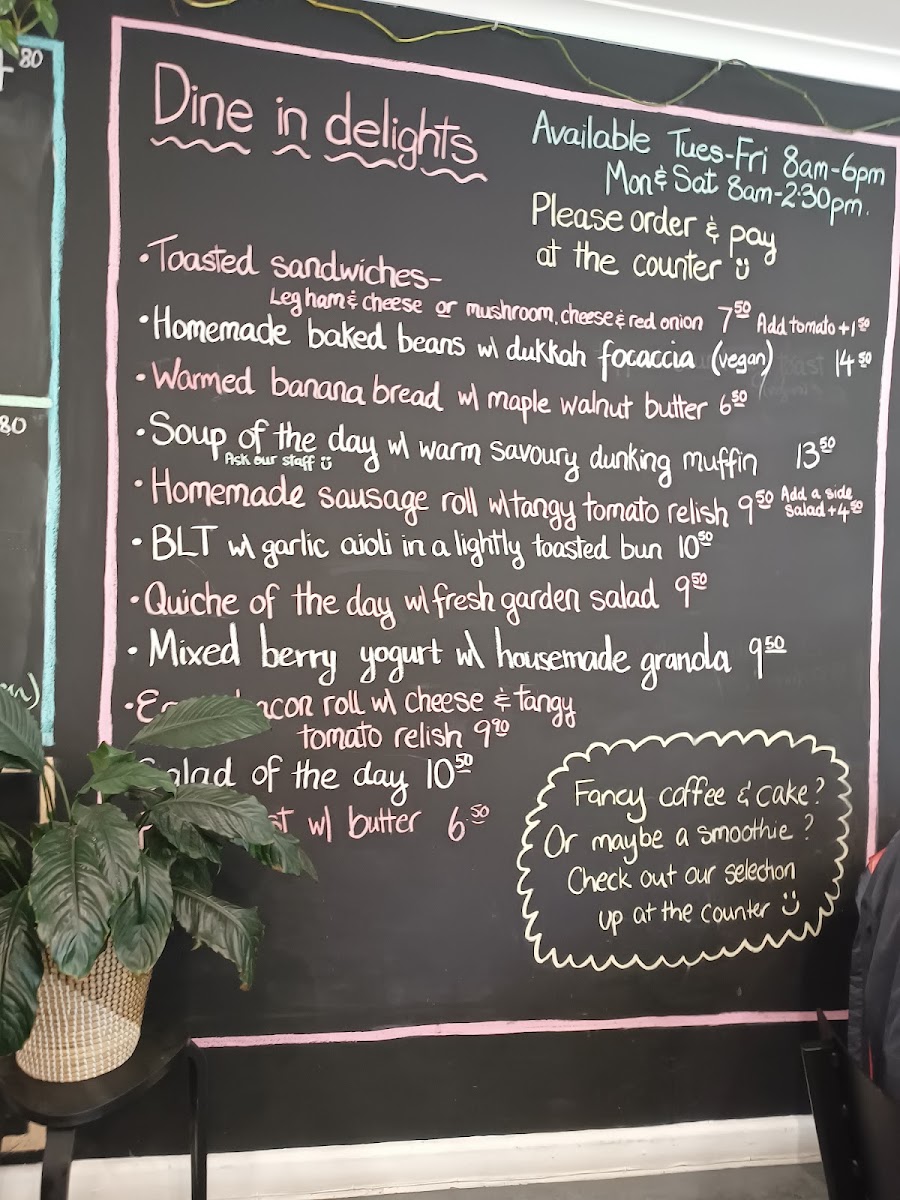 80
Dine in delights
Available Tues-Fri 8am-6pm
Mon & Sat 8am-2:30pm.
Please order & pay
at the counter
• Toasted sandwiches-
Leg ham & cheese or mushroom, cheese & red onion 7 50 Add tomato +1 50
• Homemade baked beans w\ dukkah focaccia (vegan) 14 50
• Warmed banana bread w\ maple walnut butter 6 50
• Soup of the day w\ warm savoury dunking muffin 13 50
Ask our staff
• Homemade sausage roll w\ tangy tomato relish 9 50 Add a side
salad +4 50
• BLT w\ garlic aioli in a lightly toasted bun 10 50
• Quiche of the day w\ fresh garden salad 9 50
• Mixed berry yogurt w\ housemade granola 9 50
• roll w\ cheese & tangy
tomato relish 9 90
Salad of the day 10 50
w\ butter 6.50
80
Fancy coffee & cake?
Or maybe a smoothie?
Check out our selection
up at the counter